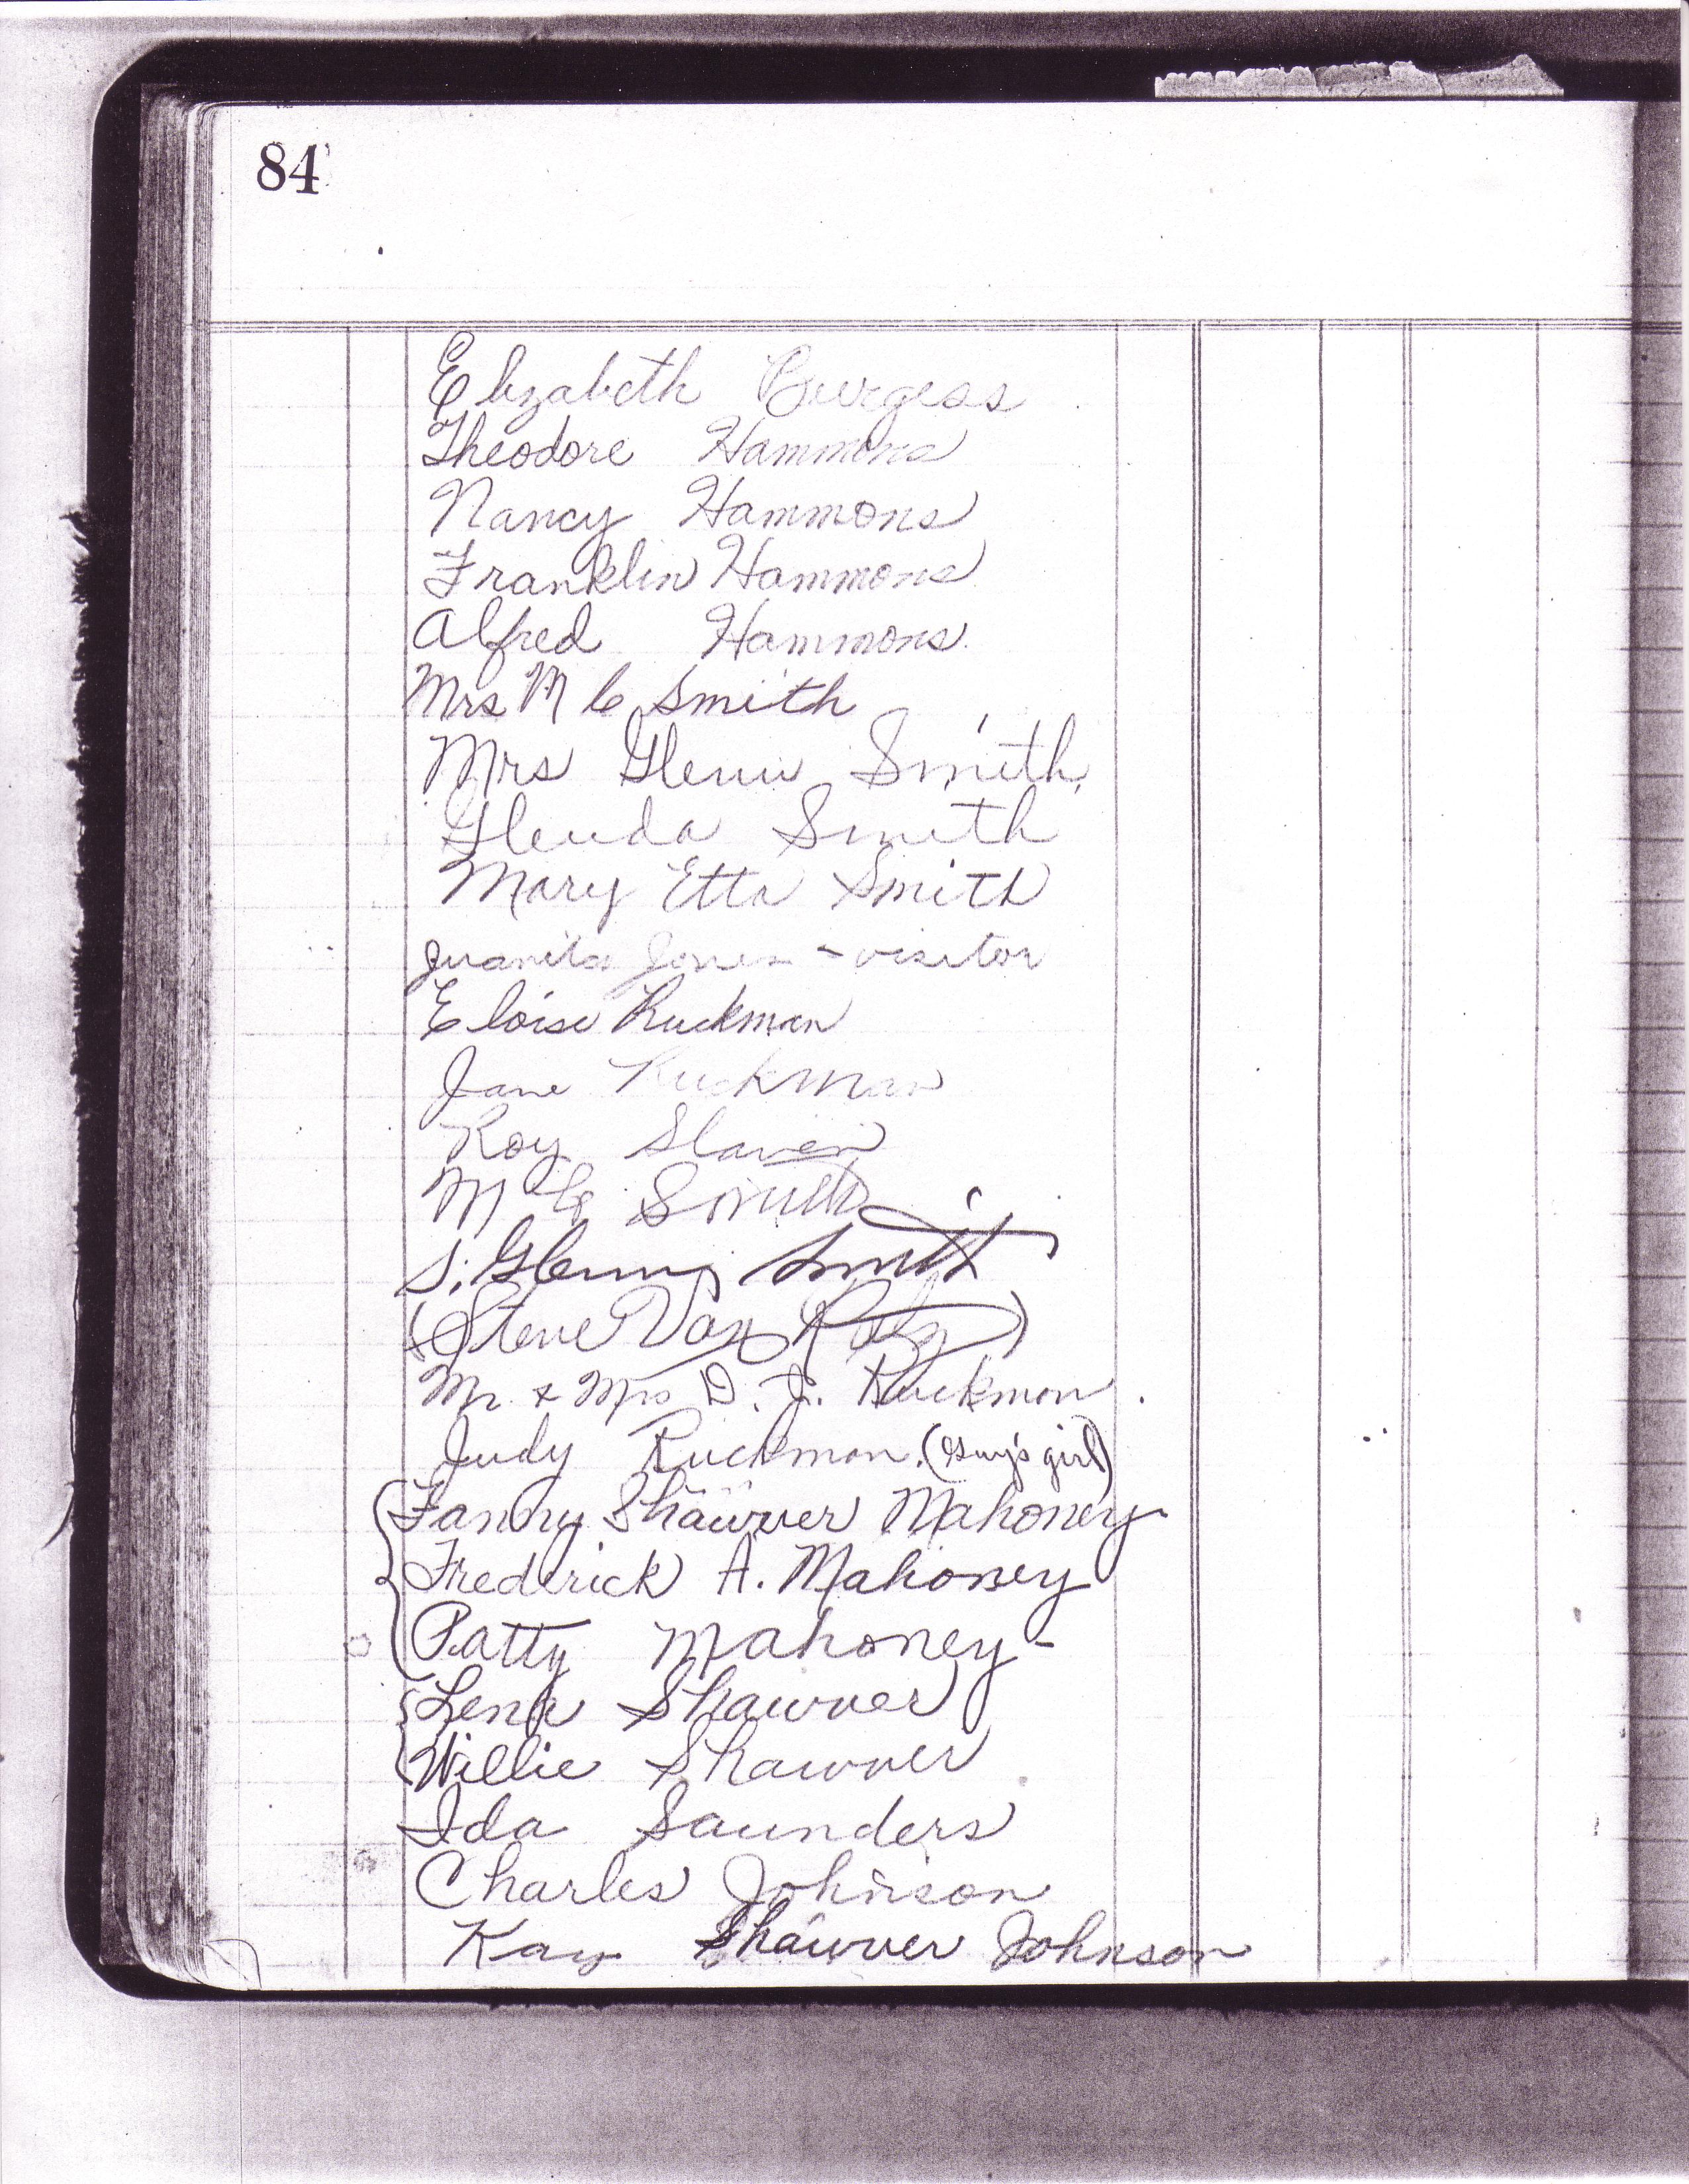 84
Elizabeth Burgess
Theodore Hammons
Nancy Hammons
Franklin Hammons
Alfred Hammons
Mrs M C Smith
Mrs Glenn Smith
Glenda Smith
Mary Etta Smith
Juanita Jones - visitor
Eloise Ruckman
Jane Ruckman
Roy Slaven
M C Smith
S. Glenn Smith
(Steve Van
Mr. & Mrs D. J. Ruckman
Judy Ruckman (Guy's girl)
Fanny Shawver Mahoney
Frederick A. Mahoney
Patty Mahoney -
Lena Shawver
Willie Shawver
Ida Saunders
Charles Johnson
Kay Shawver Johnson